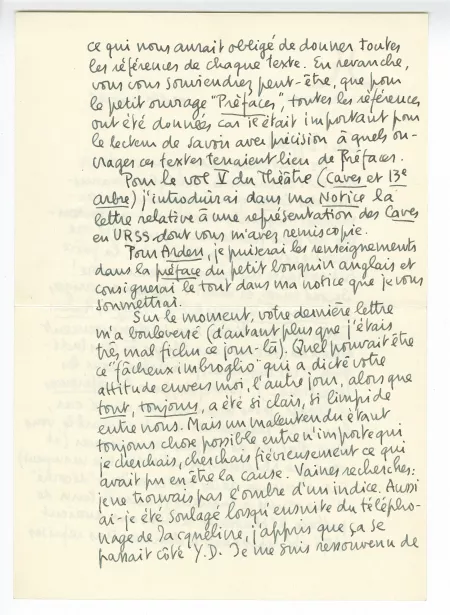 ce qui nous aurait obligé de donner toutes
les références de chaque texte. En revanche,
vous vous souviendrez peut-être, que pour
le petit ouvrage "Préfaces", toutes les références
ont été données car il était important pour
le lecteur de savoir avec précision à quels ou-
vrages ces textes tenaient lieu de Préfaces.
Pour le vol V du Théâtre (Caves et 13e
arbre) j'introduirai dans ma Notice la
lettre relative à une représentation des Caves
en URSS dont vous m'avez remis copie.
Pour Arden, je puiserai les renseignements
dans la préface du petit bouquin anglais et
consignerai le tout dans ma notice que je vous
soumettrai.
Sur le moment, votre dernière lettre
m'a bouleversé (d'autant plus que j'étais
très mal fichu ce jour-là). Quel pouvait être
ce "fâcheux imbroglio" qui a dicté votre
attitude envers moi, l'autre jour, alors que
tout, toujours, a été si clair, si limpide
entre nous. Mais un malentendu étant
toujours chose possible entre n'importe qui
je cherchais, cherchais fiévreusement ce qui
avait pu en être la cause. Vaines recherches:
je ne trouvais pas l'ombre d'un indice. Aussi
ai-je été soulagé lorsqu'ensuite du télépho-
nage de Jacqueline, j'appris que ça se
passait côté Y.D. Je me suis ressouvenu de